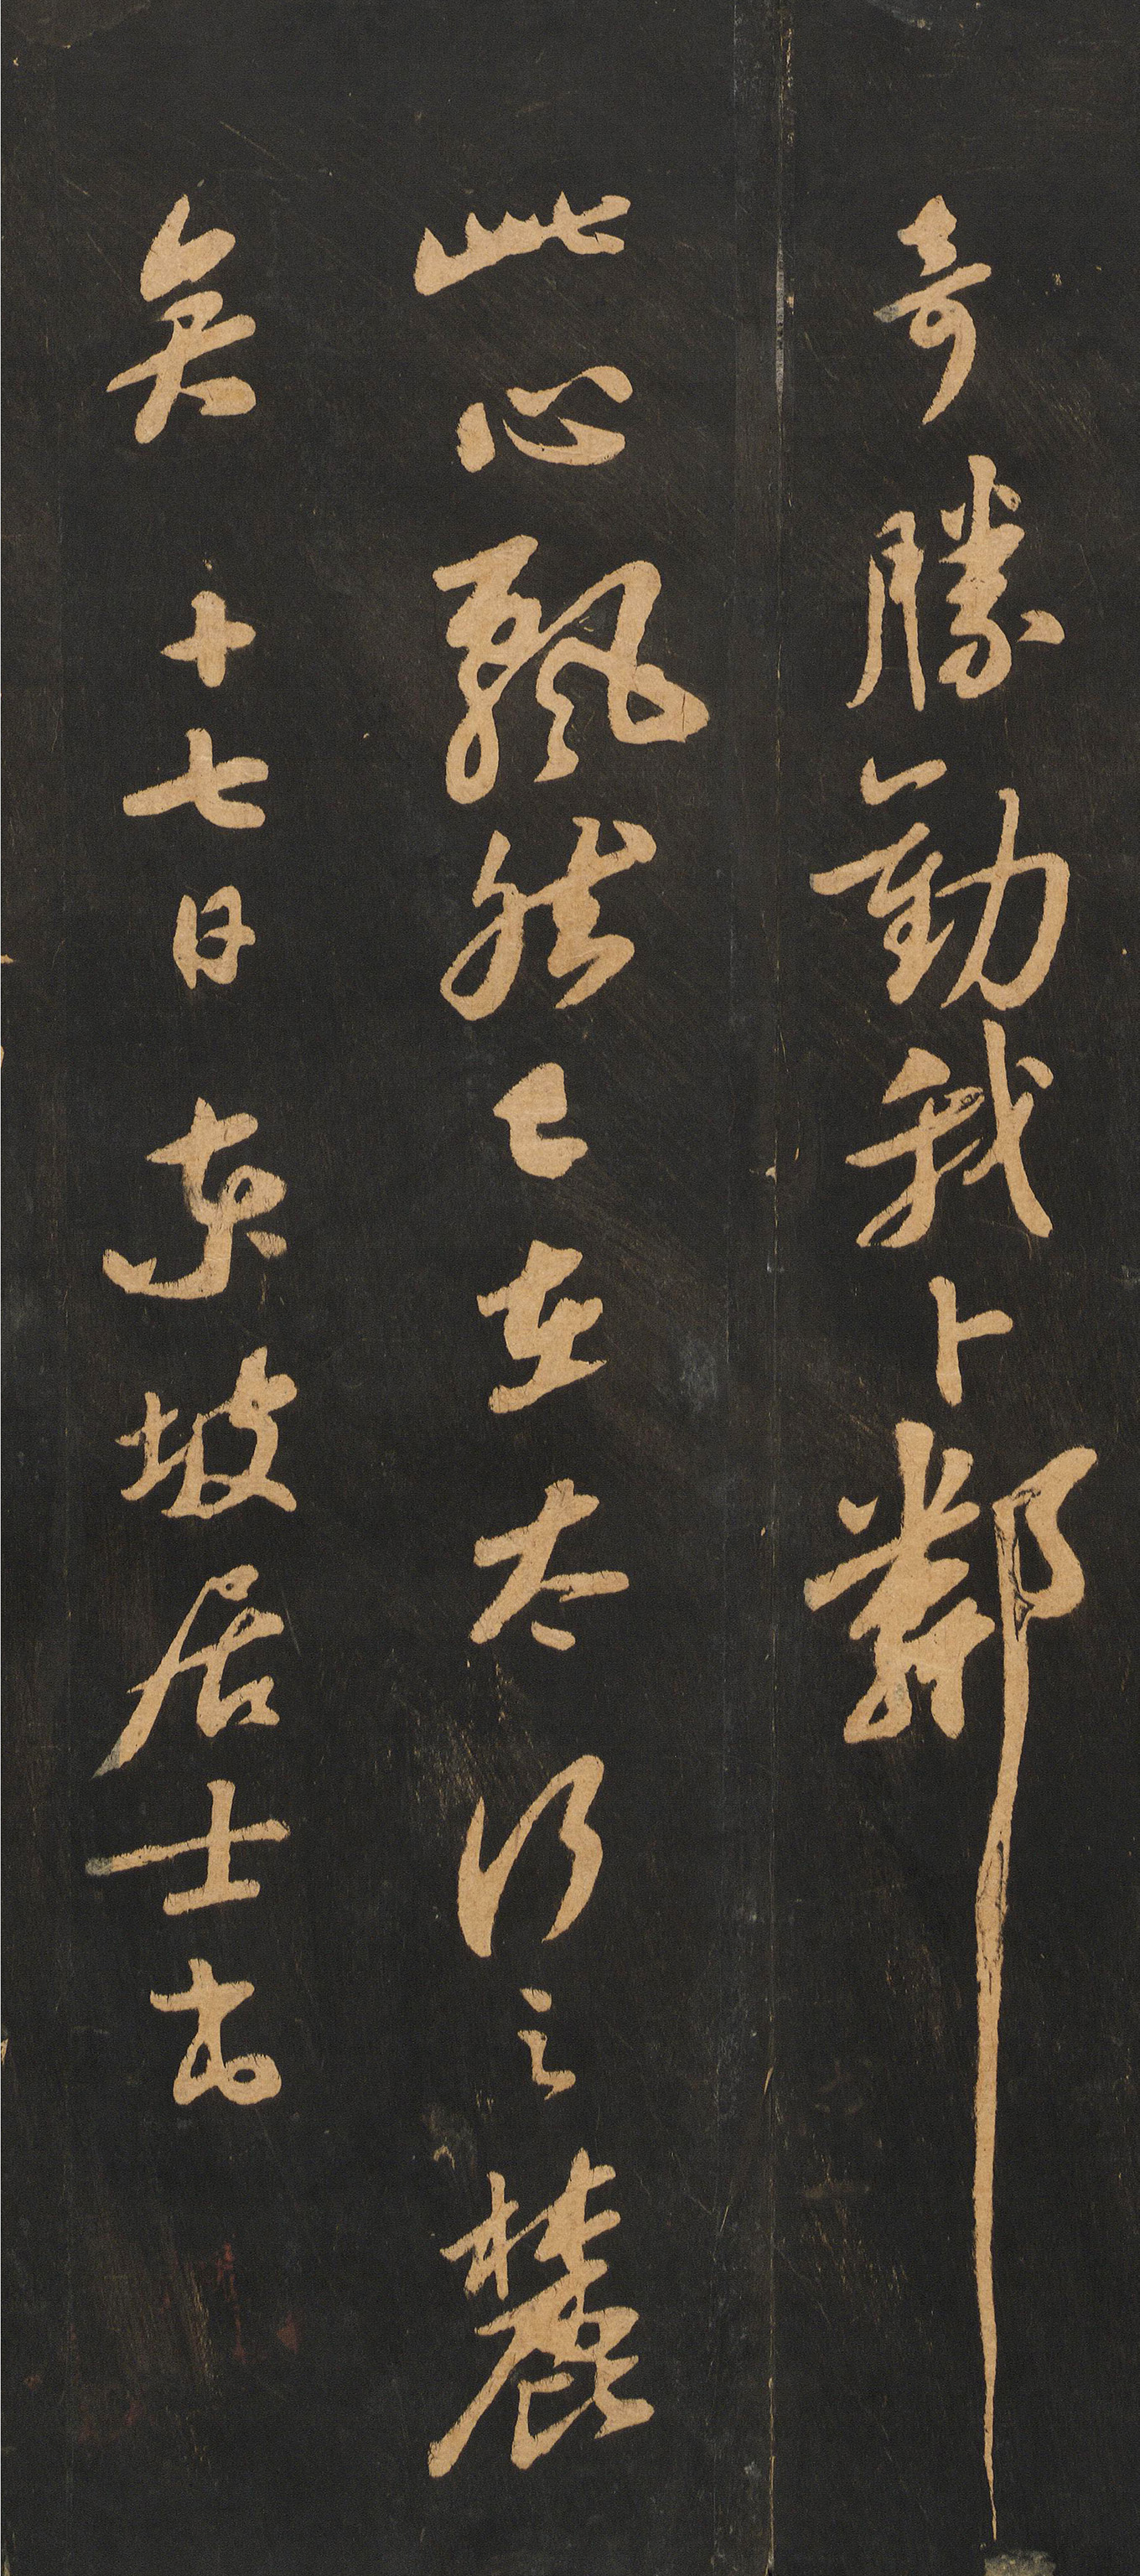 奇勝勸我卜鄰
此心飄然已在太行之麓
矣 十七日 東坡居士書